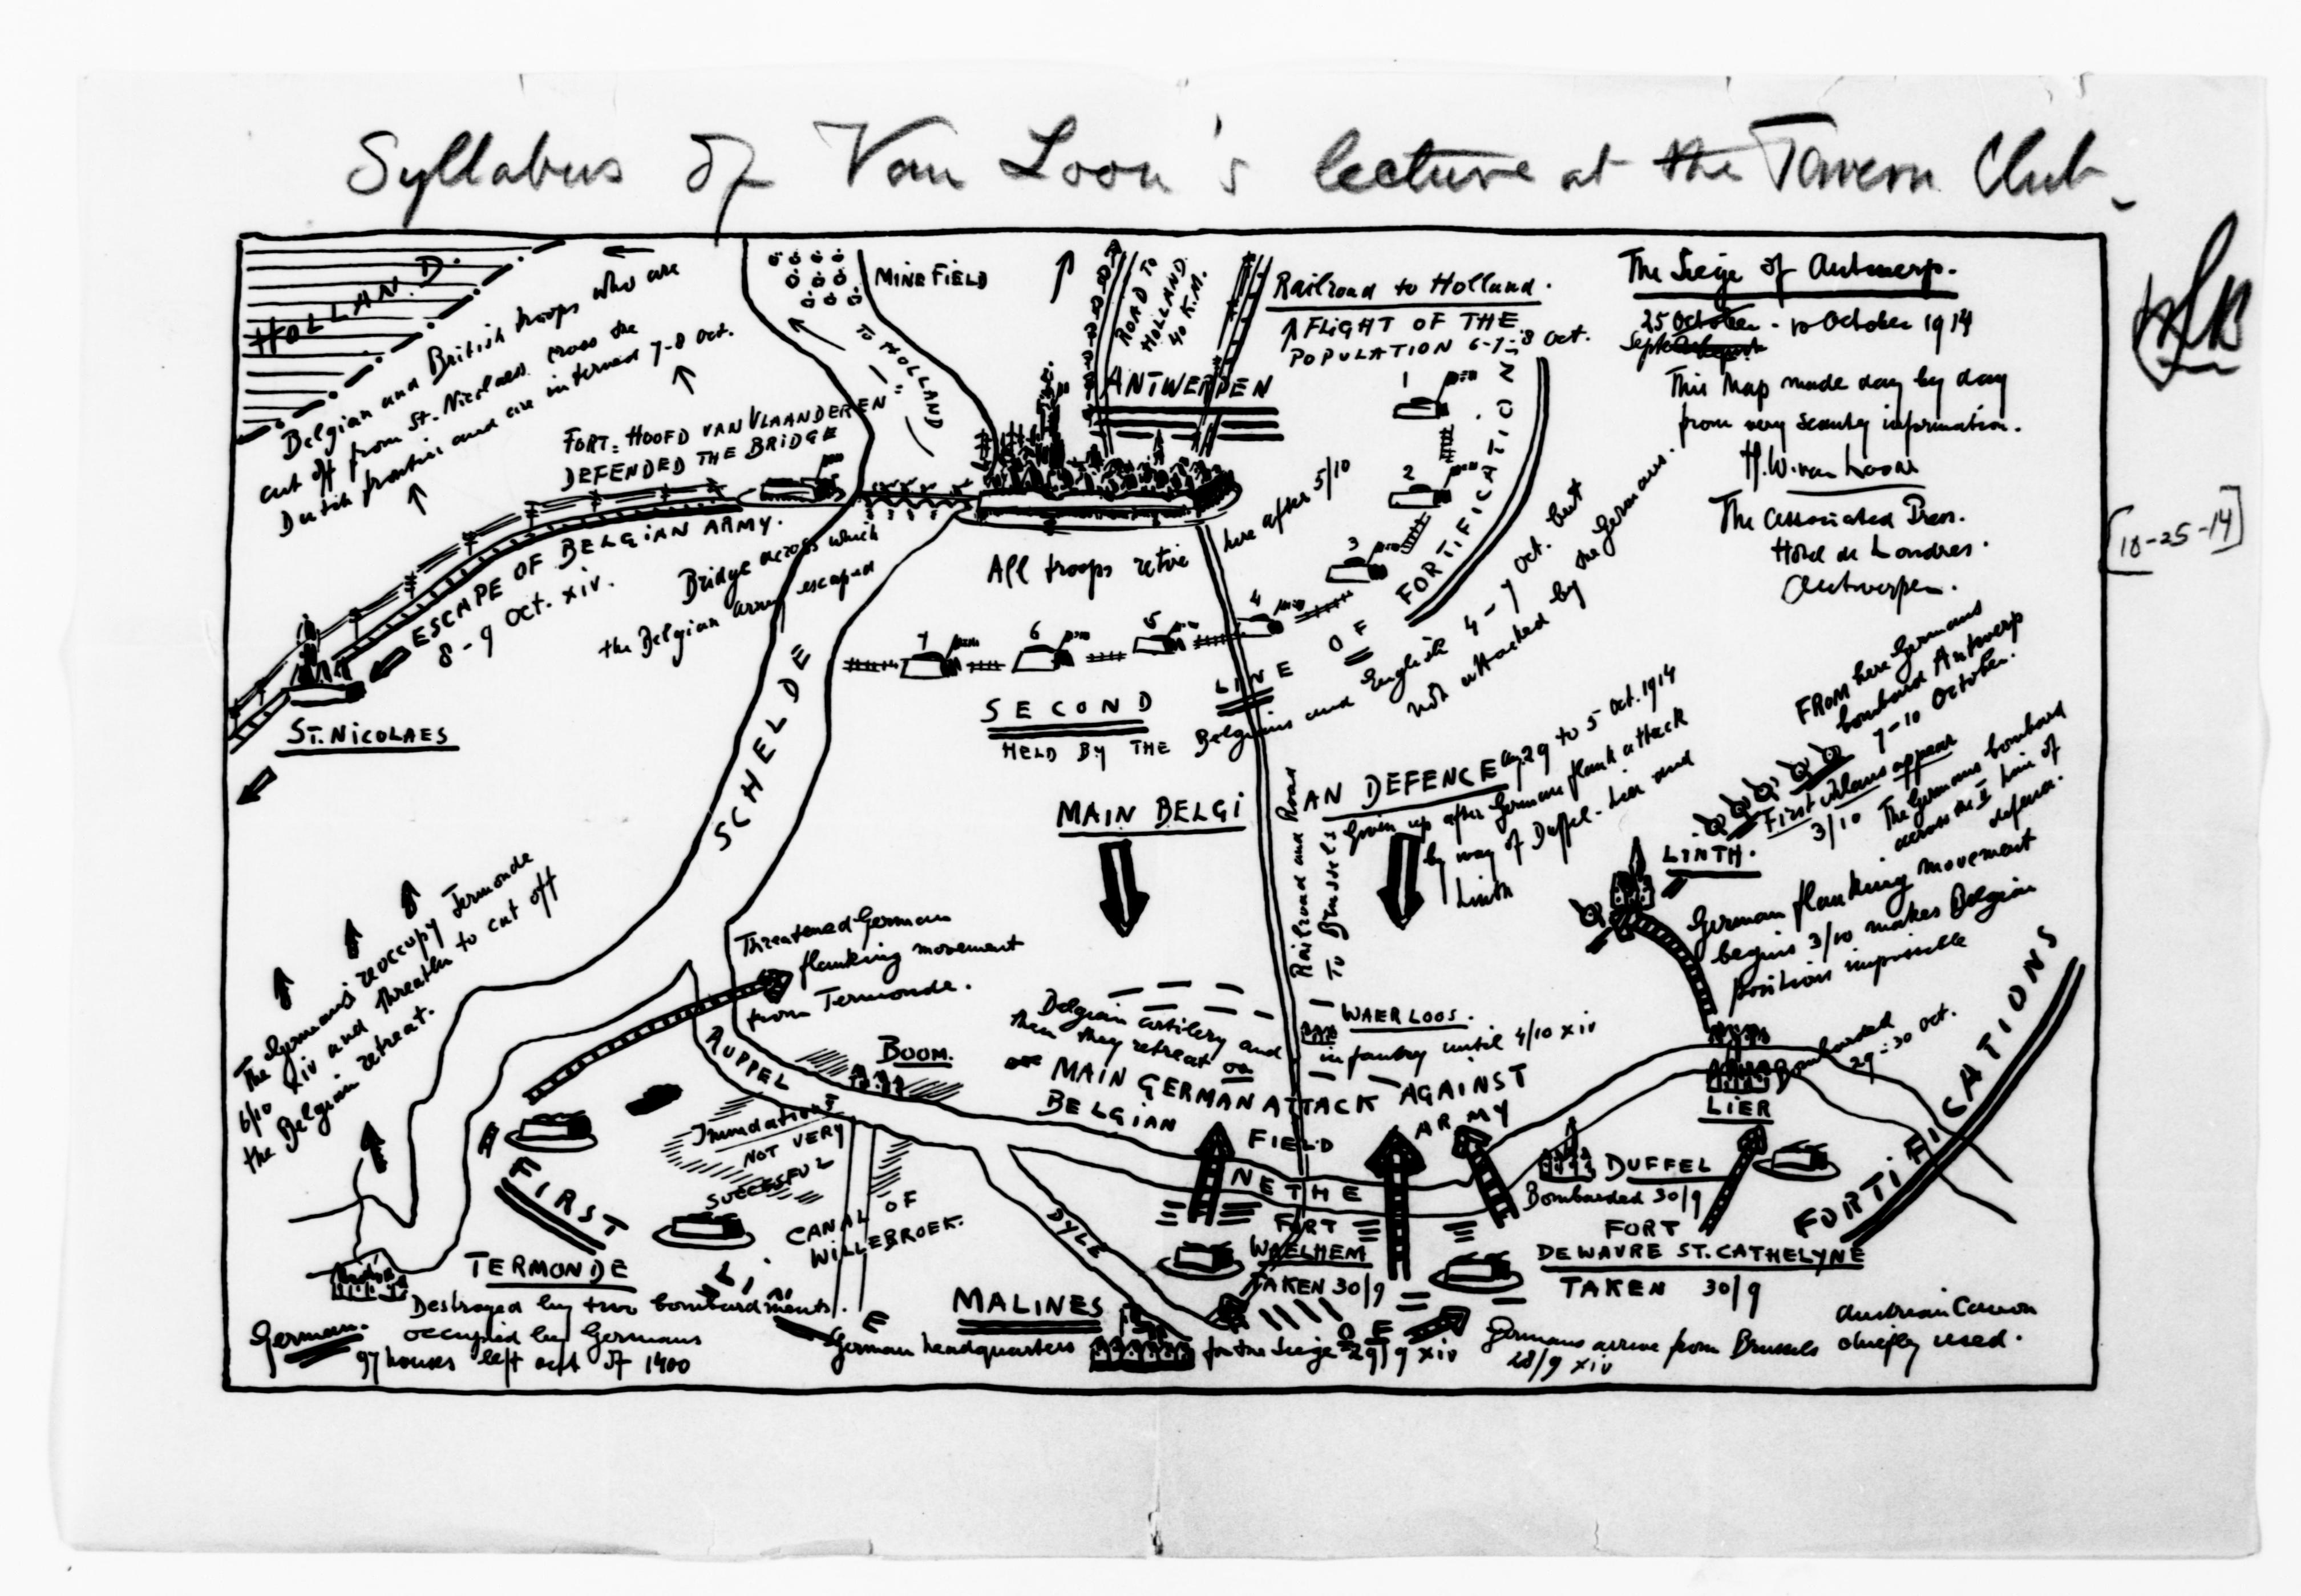 Syllabus of Van Loon's lecture at the Tavern Club
[10-25-14]
HOLLAND.
Belgian and British troops who are
cut off from St. Nicolaes cross the
Dutch frontier and are interned 7-8 Oct.
MINEFIELD
TO HOLLAND
ROAD TO
HOLLAND.
40 K.M.
Railroad to Holland.
FLIGHT OF THE
POPULATION 6-7-8 Oct.
ANTWERPEN
The Siege of Antwerp.
25 October - 10 October 1914
Sept
This Map made day by day
from very scanty information.
H.W. van Loon
The Associated Press.
Hotel de Londres.
Antwerpen.
FORT. HOOFD VAN VLAANDEREN
DEFENDED THE BRIDGE
ESCAPE OF BELGIAN ARMY.
8-9 Oct. XIV.
Bridge across which
the Belgian army escaped
ST. NICOLAES
All troops retire here after 5/10
1
2
3
4
5
6
7
SECOND LINE OF FORTIFICATION
HELD BY THE Belgians and English 4-9 Oct. but
not attacked by the Germans.
SCHELDE
MAIN BELGIAN DEFENCE 29 to 5 Oct. 1914
Given up after German flank attack
by way of Duffel-Lier and
Linth
Railroad and Road
To Brussels
FROM here Germans
bombard Antwerp
7-10 October.
First Uhlans appear
3/10
The Germans bombard
across the II line of
defence.
LINTH.
German flanking movement
begins 3/10 makes Belgian
position impossible
The Germans reoccupy Termonde
6/10 XIV and threaten to cut off
the Belgian retreat.
Threatened German
flanking movement
from Termonde.
RUPPEL
BOOM.
Belgian artillery and infantry until 4/10 XIV
then they retreat on
WAERLOOS.
MAIN GERMAN ATTACK AGAINST
BELGIAN FIELD ARMY
Bombarded
29-30 Oct.
LIER
Inundations
NOT VERY
SUCCESFUL
CANAL OF
WILLEBROEK.
NETHE
DYLE
DUFFEL
Bombarded 30/9
FORT
WAELHEM
TAKEN 30/9
FORT
DE WAVRE ST. CATHELYNE
TAKEN 30/9
FIRST LINE OF FORTIFICATIONS
TERMONDE
Destroyed by two bombardments.
occupied by Germans
97 houses left out of 1400
German.
MALINES
German headquarters for the Siege 29/9 XIV
Germans arrive from Brussels
28/9 XIV
Austrian Cannon
chiefly used.